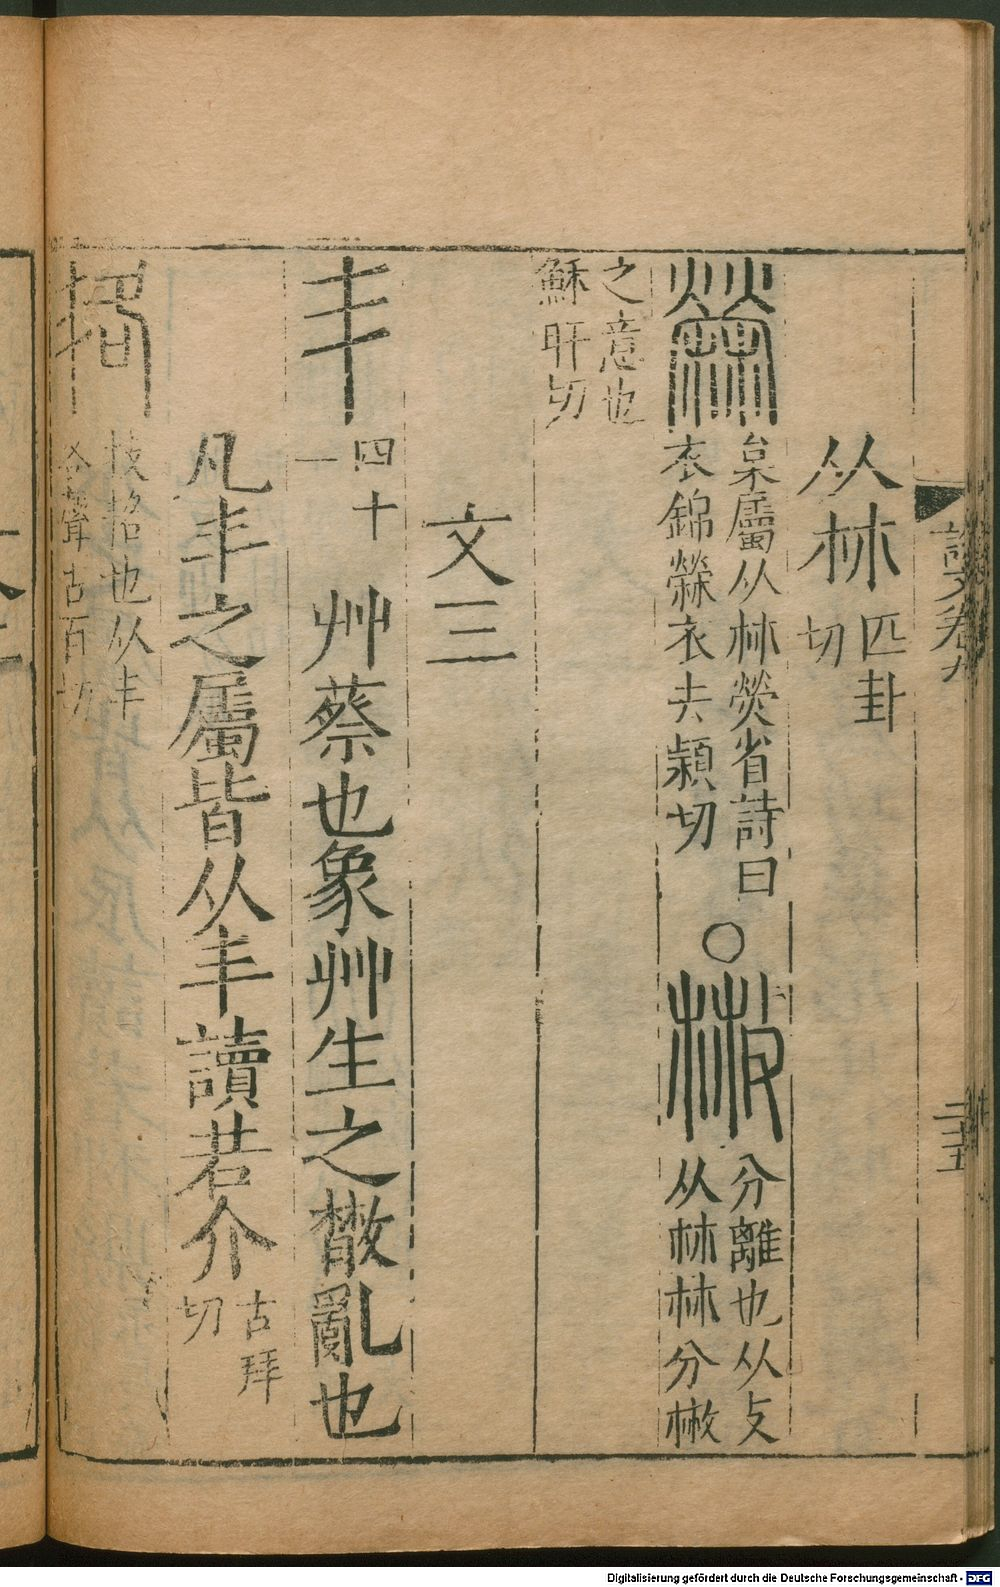 說文卷九
二五
从𣏟匹卦切
𦾵枲屬从𣏟熒省詩曰衣錦檾衣去潁切○㪔分離也从攴从𣏟𣏟分㪔
之意也穌旰切
文三
丯四十一艸蔡也象艸生之㪚亂也
凡丯之屬皆从丯讀若介古拜切
枝㧻也从丯各聲古百切
Digitalisierung gefördert durch die Deutsche Forschungsgemeinschaft - DFG